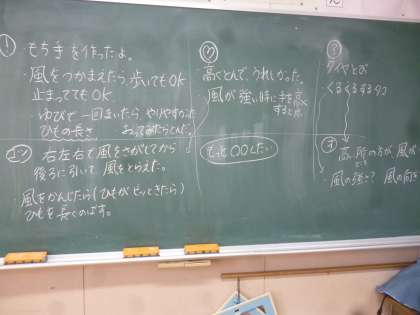 ・もち手を作ったよ。
・風をつかまえたら、歩いてもOK
止まっててもOK
・ゆびで一回まいたら、やりやすかった
ひもの長さ
右左右で風をさがしてから
後ろに引いて、風をとらえた。
・風をかんじたら(ひもがピッときたら)
ひもを長くのばす。
高くとんで、うれしかった。
・風が強い時に手を高く
すると
もっと〇〇したい
ダイヤとび
くるくるするタコ
高い所の方が、風が
・風の強さ? 風の向き